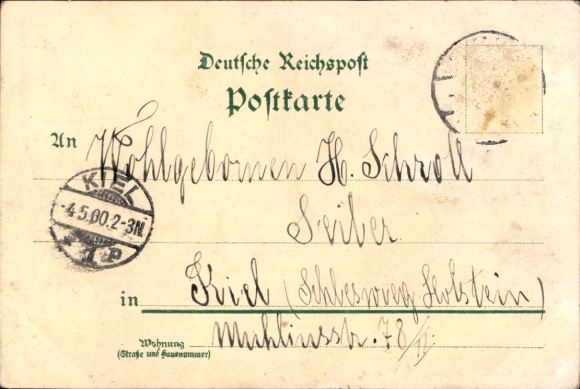 Deutsche Reichspost
Postkarte
An Wohlgebornen H. Schroll
Seiber
KIEL
-4.5.00.2-3N
* 1 P
in Kiel (Schleswig Holstein)
Wohnung
(Straße und Hausnummer)
Muhliusstr. 78/II.